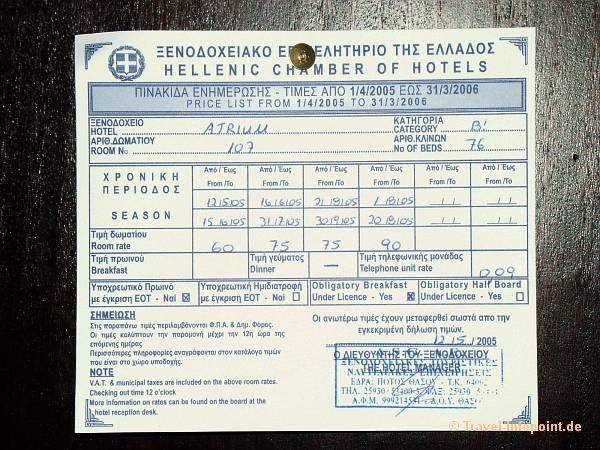 ΞΕΝΟΔΟΧΕΙΑΚΟ ΕΠΙΜΕΛΗΤΗΡΙΟ ΤΗΣ ΕΛΛΑΔΟΣ
HELLENIC CHAMBER OF HOTELS
ΠΙΝΑΚΙΔΑ ΕΝΗΜΕΡΩΣΗΣ - ΤΙΜΕΣ ΑΠΟ 1/4/2005 ΕΩΣ 31/3/2006
PRICE LIST FROM 1/4/2005 TO 31/3/2006
ΞΕΝΟΔΟΧΕΙΟ ΚΑΤΗΓΟΡΙΑ
HOTEL ATRIUM CATEGORY Β'
ΑΡΙΘ.ΔΩΜΑΤΙΟΥ ΑΡΙΘ.ΚΛΙΝΩΝ
ROOM No 107 No OF BEDS 76
ΧΡΟΝΙΚΗ ΠΕΡΙΟΔΟΣ
SEASON
Από / Έως Από / Έως Από / Έως Από / Έως Από / Έως Από / Έως
From /To From /To From /To From /To From /To From /To
12/5/05 16/6/05 21/8/05 1/8/05 / / / /
15/6/05 31/7/05 30/9/05 20/8/05 / / / /
Τιμή δωματίου
Room rate 60 75 75 90
Τιμή πρωινού Τιμή γεύματος Τιμή τηλεφωνικής μονάδας
Breakfast Dinner — Telephone unit rate 0,09
Υποχρεωτικό Πρωινό Υποχρεωτική Ημιδιατροφή Obligatory Breakfast Obligatory Half Board
με έγκριση ΕΟΤ - Ναί ☒ με έγκριση ΕΟΤ - Ναί ☐ Under Licence - Yes ☒ Under Licence - Yes ☐
ΣΗΜΕΙΩΣΗ
Στις παραπάνω τιμές περιλαμβάνονται Φ.Π.Α. & Δημ. Φόρος.
Οι τιμές καλύπτουν την παραμονή μέχρι την 12η ώρα της
επόμενης ημέρας
Περισσότερες πληροφορίες αναγράφονται στον κατάλογο τιμών
που είναι στο χώρο υποδοχής.
NOTE
V.A.T. & municipal taxes are included on the above room rates.
Checking out time 12 o'clock
More information on rates can be found on the board at the
hotel reception desk.
Οι ανωτέρω τιμές έχουν μεταφερθεί σωστά απο την
εγκεκριμένη δήλωση τιμών.
12/5/2005
Ο ΔΙΕΥΘΥΝΤΗΣ ΤΟΥ ΞΕΝΟΔΟΧΕΙΟΥ
THE HOTEL MANAGER
ΞΕΝΟΔΟΧΕΙΑΚΕΣ ΤΟΥΡΙΣΤΙΚΕΣ
ΝΑΥΤΙΛΙΑΚΕΣ ΕΠΙΧΕΙΡΗΣΕΙΣ
ΕΔΡΑ: ΠΟΤΟΣ ΘΑΣΟΥ - Τ.Κ.
ΤΗΛ: 25930
Α.Φ.Μ. Δ.Ο.Υ. ΘΑΣΟΥ
© Travel.Infopoint.de